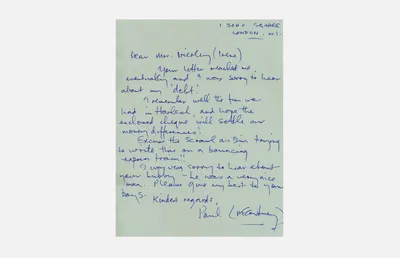 1 SOHO SQUARE
LONDON. W.1.
Dear Mrs. (Irene)
Your letter reached me
eventually and I was sorry to hear
about my 'debt'!
I remember well the fun we
had in Harlech, and hope the
enclosed cheque will settle our
money differences!
Excuse the scrawl as I'm trying
to write this on a bouncing
"express train"
I was very sorry to hear about
your hubby – he was a very nice
man. Please give my best to your
boys. Kindest regards,
Paul (McCartney)